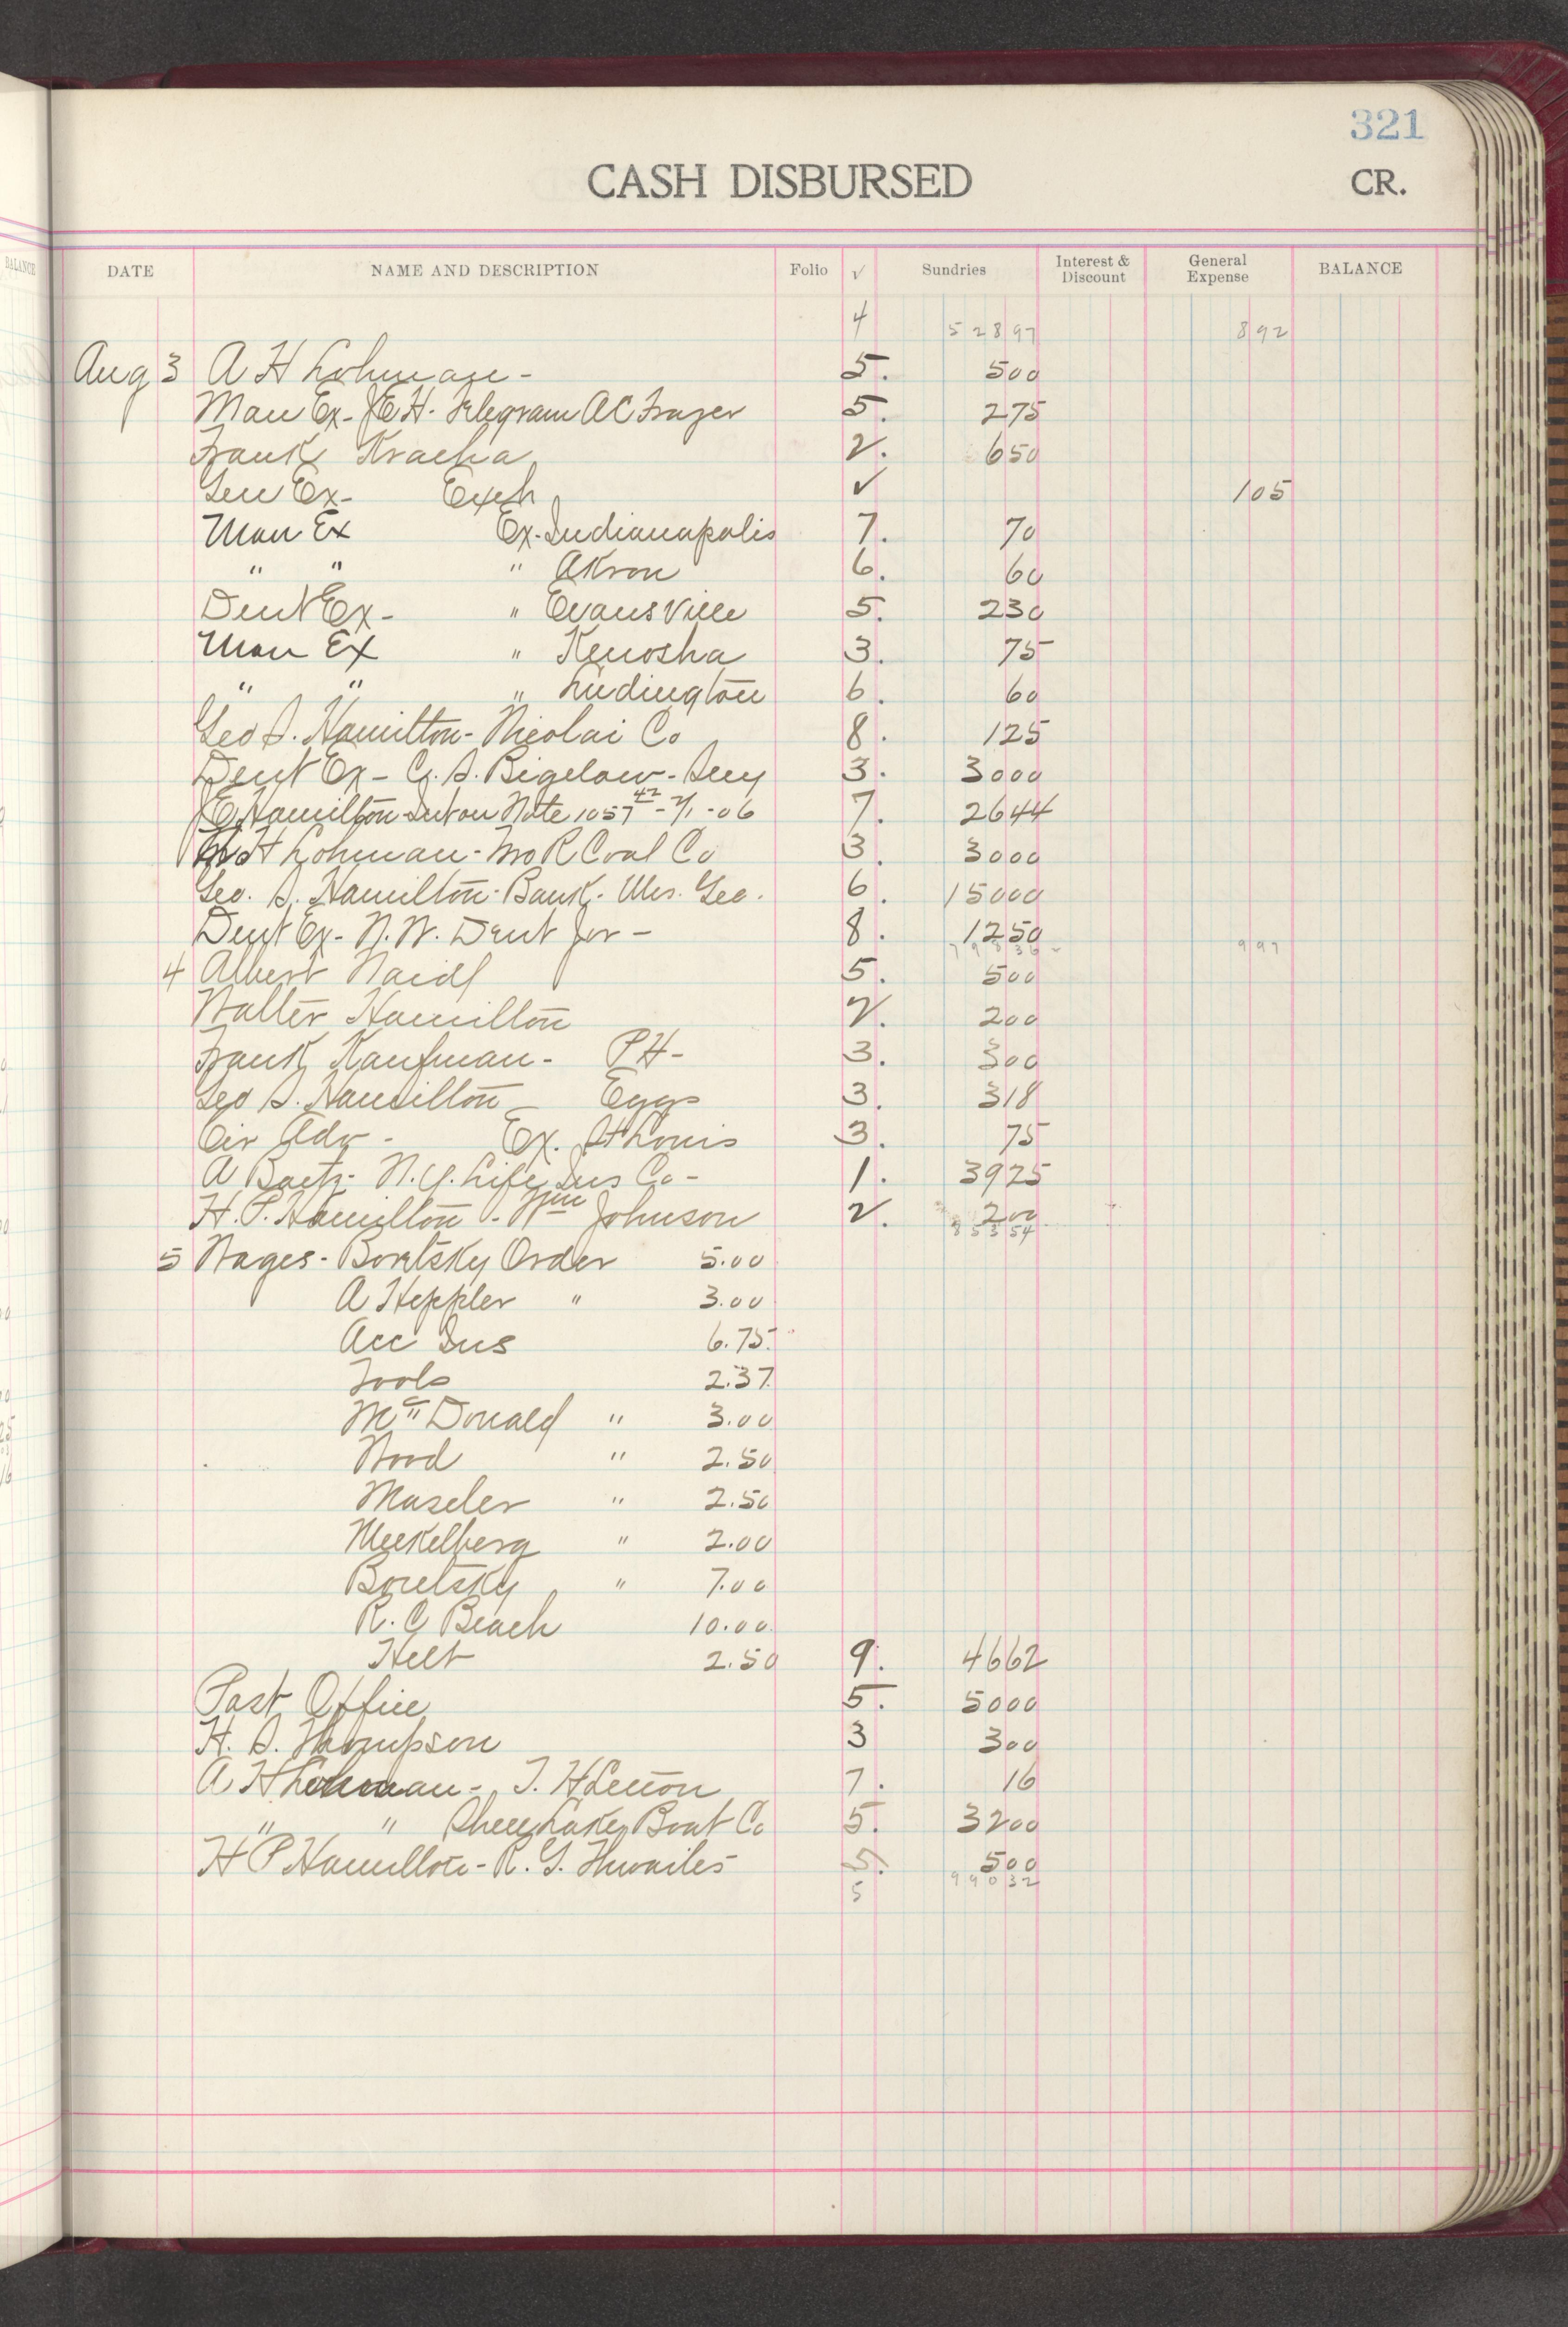 321
CASH DISBURSED CR.
BALANCE
DATE NAME AND DESCRIPTION Folio √ Sundries Interest & Discount General Expense BALANCE
4 52897 892
Aug 3 A H Lohman - 5. 500
Man Ex - J E H. Telegram A C Frazer 5. 275
Frank Kracha 2. 650
Gen Ex - Exch ✓ 105
Man Ex Ex. Indianapolis 7. 70
" " " Akron 6. 60
Dent Ex - " Evansville 5. 230
Man Ex " Kenosha 3. 75
" " " Ludington 6. 60
Geo S. Hamilton - Nicolai Co 8. 125
Dent Ex - C. S. Bigelow - Secy 3. 3000
J E Hamilton Int on Note 1057 42 - 7/1 - 06 7. 2644
A H Lohman - Mo R Coal Co 3. 3000
Geo. S. Hamilton - Bank - Mrs. Geo. 6. 15000
Dent Ex - N. W. Dent Jor - 8. 1250
79836 - 997
4 Albert Naidl 5. 500
Walter Hamilton 2. 200
Frank Kaufman - P H - 3. 300
Geo S. Hamilton - Eggs 3. 318
Cir Adv - Ex. St Louis 3. 75
A Baetz - N. Y. Life Ins Co - 1. 3925
H. P. Hamilton - Wm Johnson 2. 200
85354
5 Wages - Boretsky Order 5.00
A Heppler " 3.00
Acc Ins 6.75
Tools 2.37
McDonald " 3.00
Wood " 2.50
Maseler " 2.50
Meekelberg " 2.00
Boretsky " 7.00
R. C Beach 10.00
Helt 2.50 9. 4662
Post Office 5. 5000
H. S. Thompson 3 300
A H Lohman - T. H 7. 16
" " Shell Lake Boat Co 5. 3200
H P Hamilton - R. G. Thwaites 5. 500
99032
5